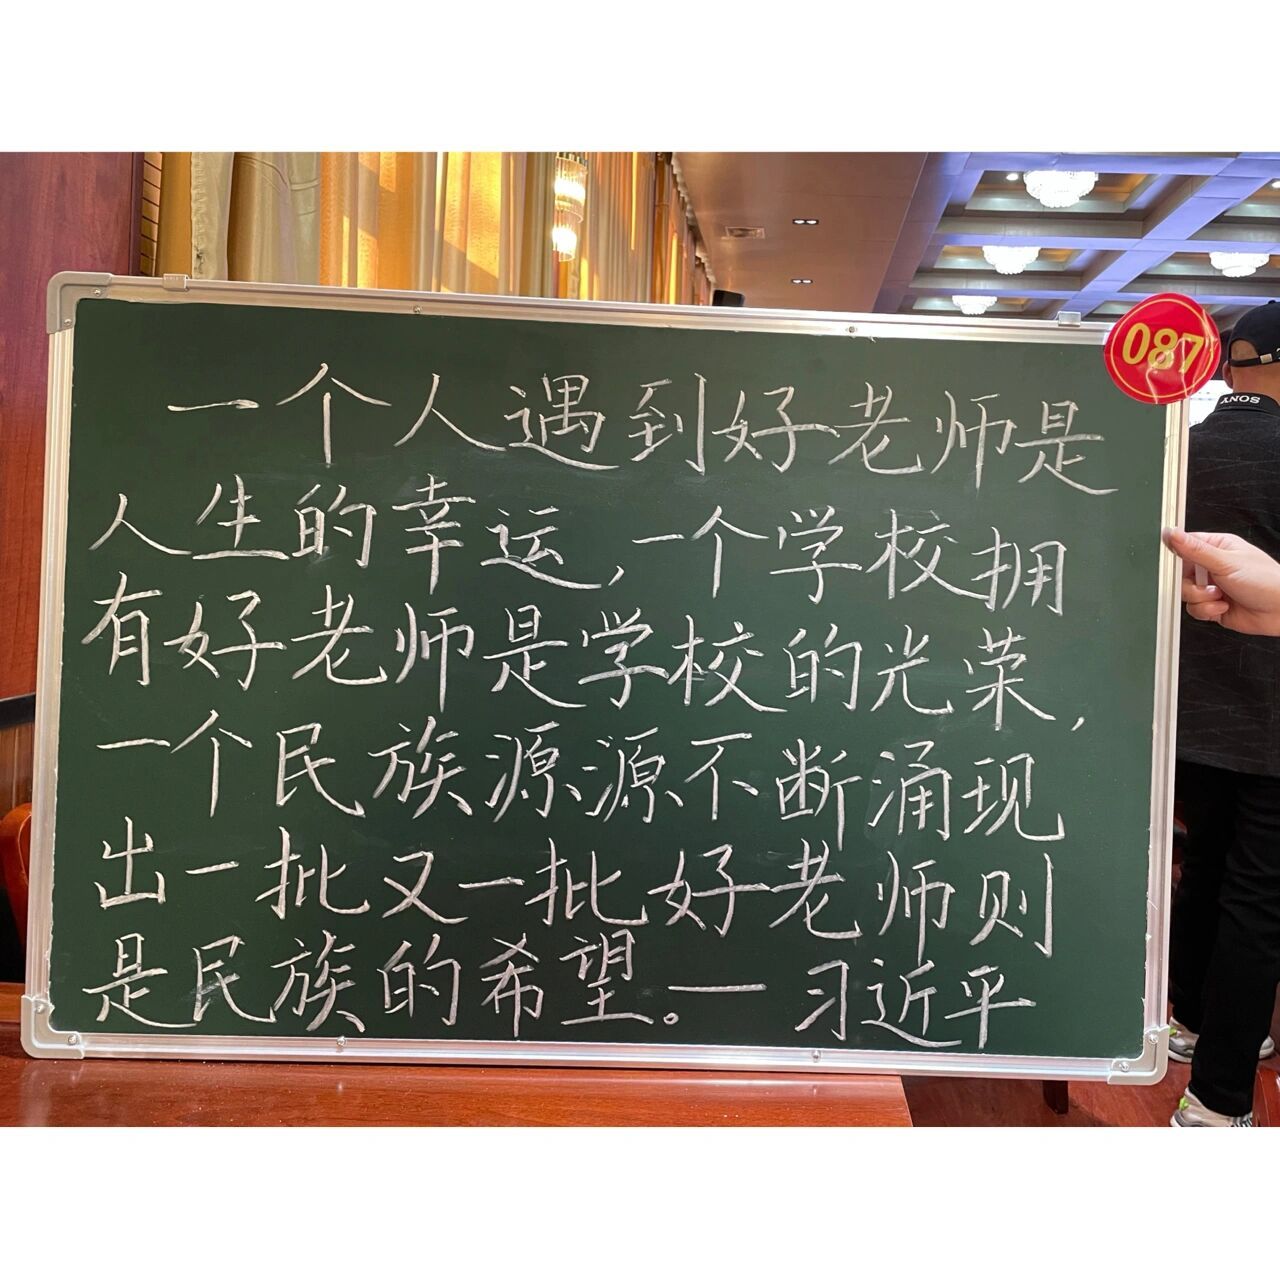 087
一个人遇到好老师是
人生的幸运,一个学校拥
有好老师是学校的光荣,
一个民族源源不断涌现
出一批又一批好老师则
是民族的希望。— 习近平